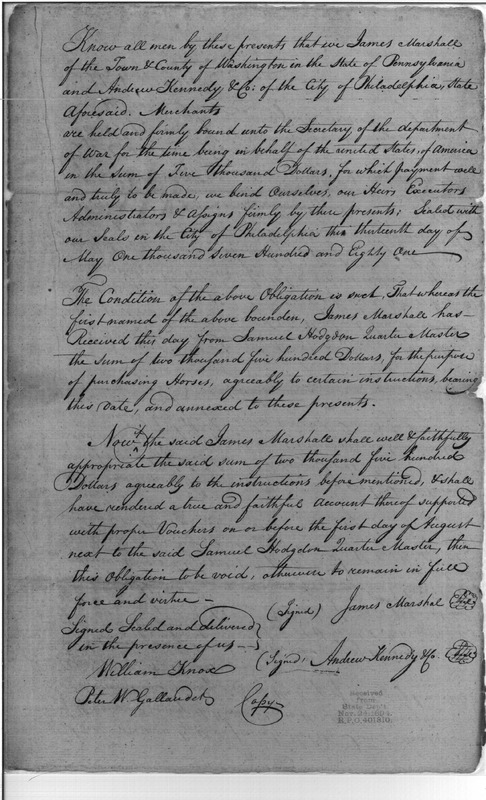 Know all men by these presents that we James Marshall
of the Town & County of Washington in the State of Pennsylvania
and Andrew Kennedy & Co: of the City of Philadelphia, State
Aforesaid. Merchants
are held and firmly bound unto the Secretary of the department
of War for the time being in behalf of the united States, of America
in the Sum of Five thousand Dollars, for which payment well
and truly to be made, we bind Ourselves, our Heirs Executors
Administrators & Assigns firmly by these presents; Sealed with
our Seals in the City of Philadelphia this thirteenth day of
May One thousand Seven Hundred and Eighty One
The Condition of the above Obligation is such, That whereas the
first named of the above bounden, James Marshall has
Received this day from Samuel Hodgdon Quarter Master
the sum of two thousand five hundred Dollars, for the purpose
of purchasing Horses, agreably to certain instructions, bearing
this date, and annexed to these presents.
Now if the said James Marshall shall well & faithfully
appropriate the said sum of two thousand five hundred
Dollars agreably to the instructions before mentioned, & shall
have rendered a true and faithful Account thereof supported
with proper Vouchers on or before the first day of August
next to the said Samuel Hodgdon Quarter Master, then
this Obligation to be void, otherwise to remain in full
force and virtue
(Signed) James Marshal Seal
Signed Sealed and delivered
in the presence of us
(Signed) Andrew Kennedy & Co. Seal
William Knox
Peter W Gallaudet
Copy
Received
from
State Dep't.
Nov. 1894.
R.P.O. 401810.